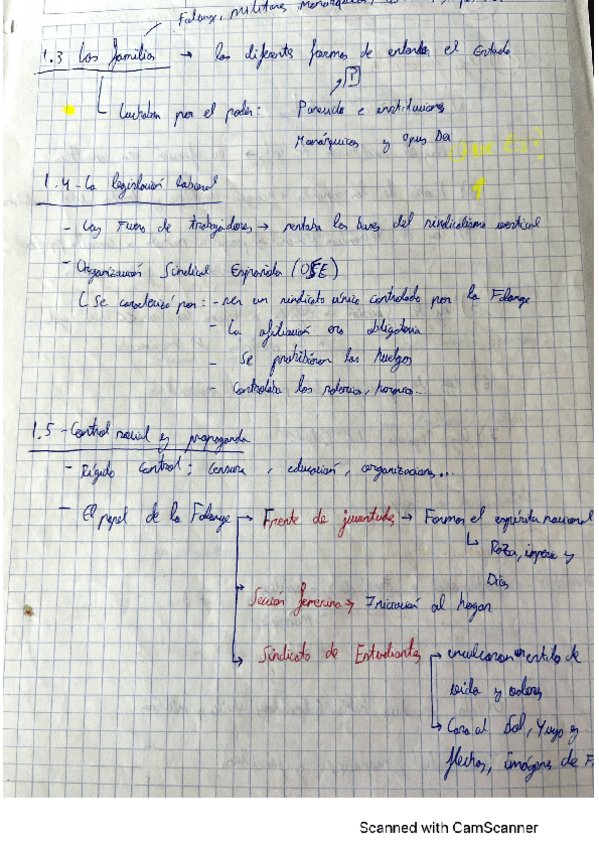 Falange, militares, Monárquicos,
1.3 Las familias → las diferentes formas de entender el Estado
Luchaban por el poder: Parecido e instituciones
P
Monárquicos y Opus Dei
Que es?
1.4-La legislación laboral
- Los Fuero de trabajadores → sentaba las bases del sindicalismo vertical
- Organización Sindical Española (OSE)
Se caracterizó por: - ser un sindicato único controlado por la Falange
- La afiliación era obligatoria
- Se prohibieron las huelgas
- Controlaba los salarios, horarios...
1.5-Control social y propaganda
- Rígido control: Censura, educación, organizaciones...
- El papel de la Falange → Frente de juventudes → Formar el espíritu nacional
Patria, imperio y
Dios
Sección femenina → Iniciación al hogar
Sindicato de Estudiantes → inculcaron estilo de
vida y valores
Cara al Sol, Yugo y
flechas, imágenes de F
Scanned with CamScanner